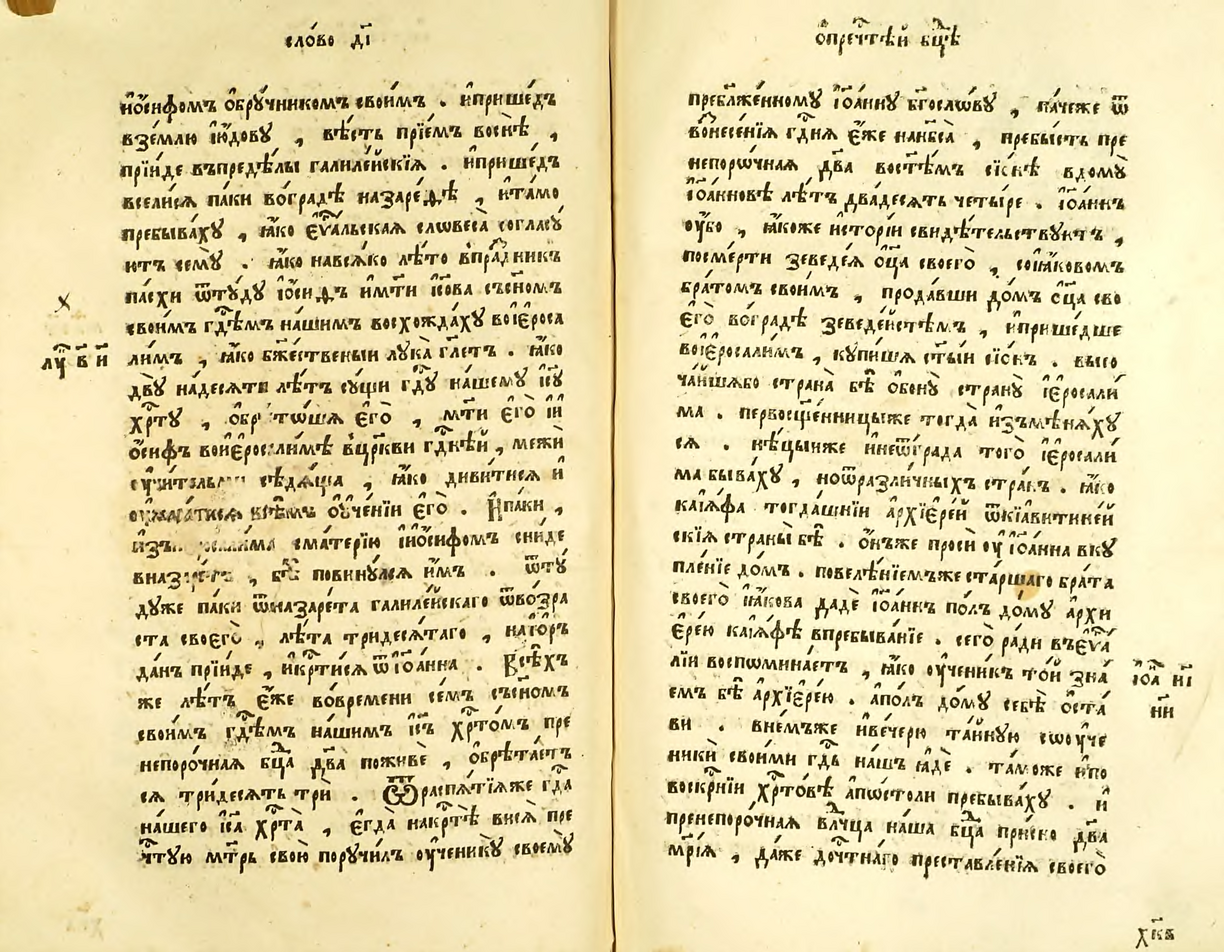 сло́во д҃і
їѡ́сифомъ ѡ҆брꙋ́чникомъ свои́мъ . и҆прише́дъ
взе́млю і҆ю́довꙋ , вѣ́сть прїе́мъ воснѣ̀ ,
прїи́де въпредѣ́лы галиле́йскїѧ . и҆прише́дъ
всели́сѧ па́ки вогра́дѣ назаре́дѣ , и҆та́мо
пребыва́хꙋ , ꙗ҆́ко є҆ѵⷢ҇альскаѧ словеса̀ согласꙋ́
ютъ семꙋ̀ . ꙗ҆́ко навсѧ́ко лѣ́то впра́зⷣникъ
па́схи ѿтꙋ́дꙋ і҆ѡ́сифъ и҆мт҃и і҆с҃ова съсн҃омъ
свои́мъ гдⷭ҇емъ на́шимъ восхожда́хꙋ воі҆єроса
лꙋⷦ҇ в҃ н҃и
ли́мъ , ꙗ҆́ко бж҃е́ственыи лꙋка̀ гл҃етъ . ꙗ҆́ко
двꙋ̀ на́десѧти лѣ́тъ сꙋ́щи гдⷭ҇ꙋ на́шемꙋ і҆с҃ꙋ
хрⷭ҇тꙋ̀ , ѡ҆брѣто́шѧ є҆го̀ , мт҃и є҆го̀ и҆ і҆
ѡ́сифъ воі҆єросали́мѣ вцр҃кви гдⷭ҇нѣй , межѝ
сѣдѧ́ща , ꙗ҆́ко диви́тисѧ и҆
всѣ́мъ ѡ҆ꙋче́нїи є҆го̀ . И҆па́ки ,
сма́терїю и҆і҆ѡ́сифомъ сни́де
бѣ̀ повинꙋ́ѧсѧ и҆̀мъ . ѿтꙋ́
дꙋже па́ки ѿназаре́та галиле́йскаго ѿво́зра
ста своегѡ̀ , лѣ́та тридесѧ́таго , наїо́ръ
да́нъ прїи́де , и҆крⷭ҇ти́сѧ ѿі҆ѡа́нна . Всѣ́хъ
же лѣ́тъ є҆́же во́времени се́мъ съсн҃омъ
свои́мъ гдⷭ҇емъ на́шимъ і҆с҃ъ хрⷭ҇то́мъ пре
непоро́чнаѧ бц҃а дв҃а поживѐ , ѡ҆брѣта́етъ
сѧ три́десѧть трѝ . Ѿраспѧ́тїѧже гдⷭ҇а
на́шего і҆с҃а хрⷭ҇та̀ , є҆гда̀ накртⷭ҇ѣ висѧ̀ пре
чтⷭ҇ꙋю мт҃рь свою̀ порꙋчи́лъ ѹ҆ченикꙋ̀ своемꙋ̀
ѡ҆пречⷭ҇тѣй бц҃ѣ
преблаже́нномꙋ і҆ѡа́ннꙋ бг҃осло́вꙋ , па́чеже ѿ
вознесе́нїѧ гдⷭ҇нѧ є҆́же нанб҃са̀ , пребы́сть пре
непоро́чнаѧ дв҃а востѣ́мъ сїѡ́нѣ вдомꙋ̀
і҆ѡа́нновѣ лѣ́тъ два́десѧть четы́ре . і҆ѡа́ннъ
ѹ҆̀бо , ꙗ҆́коже и҆сто́рїи свидѣ́тельствꙋютъ ,
посме́рти зеведе́ѧ ѻц҃а своего̀ , соі҆а́ковомъ
бра́томъ свои́мъ , прода́вши до́мъ ѻц҃а сво
є҆го̀ вогра́дѣ зеведе́йстѣмъ , и҆прише́дше
воі҆єросали́мъ , кꙋпи́шѧ ст҃ы́й сїѡ́нъ . высо
ча́йшѧбо страна̀ бѣ̀ ѡ҆бонꙋ̀ странꙋ̀ і҆єросали́
ма . первосще҃нницыже тогда̀ и҆зъмѣнѧ́хꙋ
сѧ . нѣ́цыиже и҆неѿгра́да того̀ і҆єросали́
ма быва́хꙋ , ноѿразли́чныхъ стра́нъ . ꙗ҆́ко
каїа́фа тогда́шнїи а҆рхїере́й ѿкїавитине́й
скїѧ страны̀ бѣ̀ . ѻ҆́нъже просѝ ѹ҆ і҆ѡа́нна вкꙋ
пле́нїе до́мъ . повелѣ́нїемъже ста́ршаго бра́та
своего̀ і҆а́кова дадѐ і҆ѡа́ннъ по́лъ до́мꙋ а҆рхи
є҆ре́ю каїа́фѣ впребыва́нїе . сегѡ̀ ра́ди въє҆ѵⷢ҇а́
лїи воспомина́етъ , ꙗ҆́ко ѹ҆чени́къ то́й зна́
і҆ѡⷩ҇а н҃і
н҃и
емъ бѣ̀ а҆рхїере́ю . а҆по́лъ до́мꙋ себѣ̀ ѡ҆ста́
ви . вне́мъже и҆ве́черю та́йнꙋю соѹ҆че
никѝ свои́ми гдⷭ҇ь на́шъ ꙗ҆дѐ . та́може и҆по
воскрⷭ҇нїи хрⷭ҇то́вѣ а҆по́столи пребыва́хꙋ . и҆
пренепоро́чнаѧ влⷣчца на́ша бц҃а при́сно дв҃а
мр҃і́ѧ , да́же дочтⷭ҇на́го преставле́нїѧ своего̀